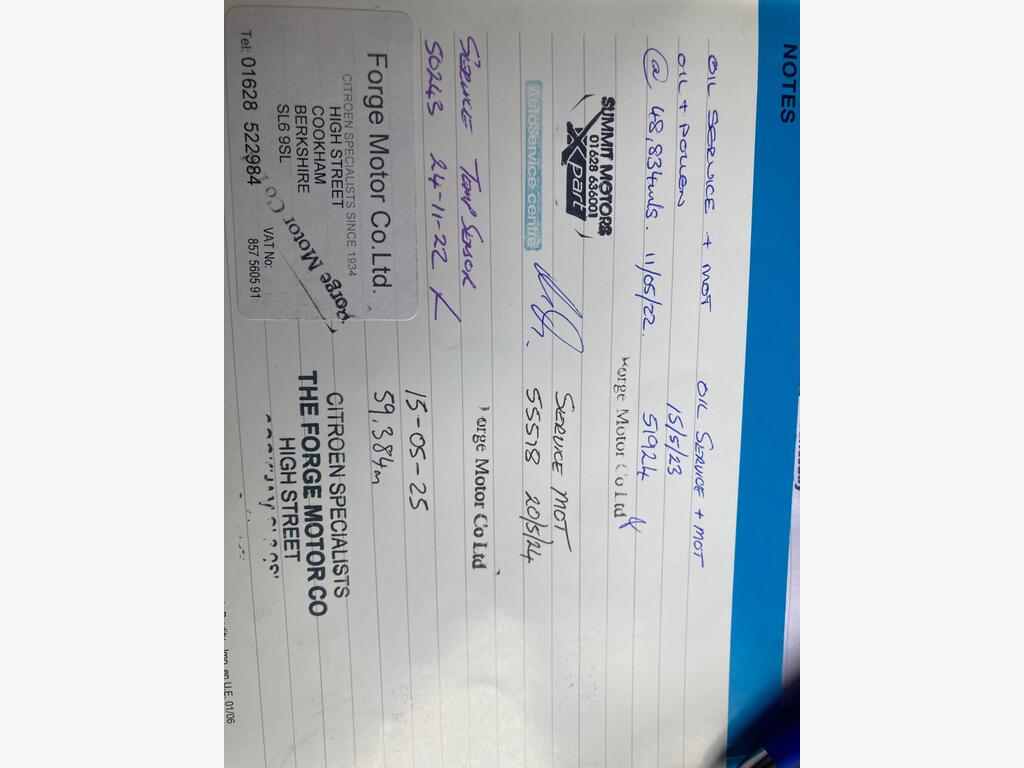 NOTES
OIL SERVICE + MOT
OIL + POLLEN
@ 48,834mls. 11/05/22.
SUMMIT MOTORS
01628 636001
Xpart
AutoService centre
SERVICE TEMP SENSOR
50243 24-11-22
Forge Motor Co.Ltd.
CITROEN SPECIALISTS SINCE 1934
HIGH STREET
COOKHAM
BERKSHIRE
SL6 9SL
VAT No:
857 5605 91
Tel: 01628 522984
Forge Motor Co.
OIL SERVICE + MOT
15/5/23
51924
Forge Motor Co Ltd
SERVICE MOT
55518 20/5/24
Forge Motor Co Ltd
15-05-25
59,384m
CITROEN SPECIALISTS
THE FORGE MOTOR CO
HIGH STREET
Imp. en U.E. 01/06